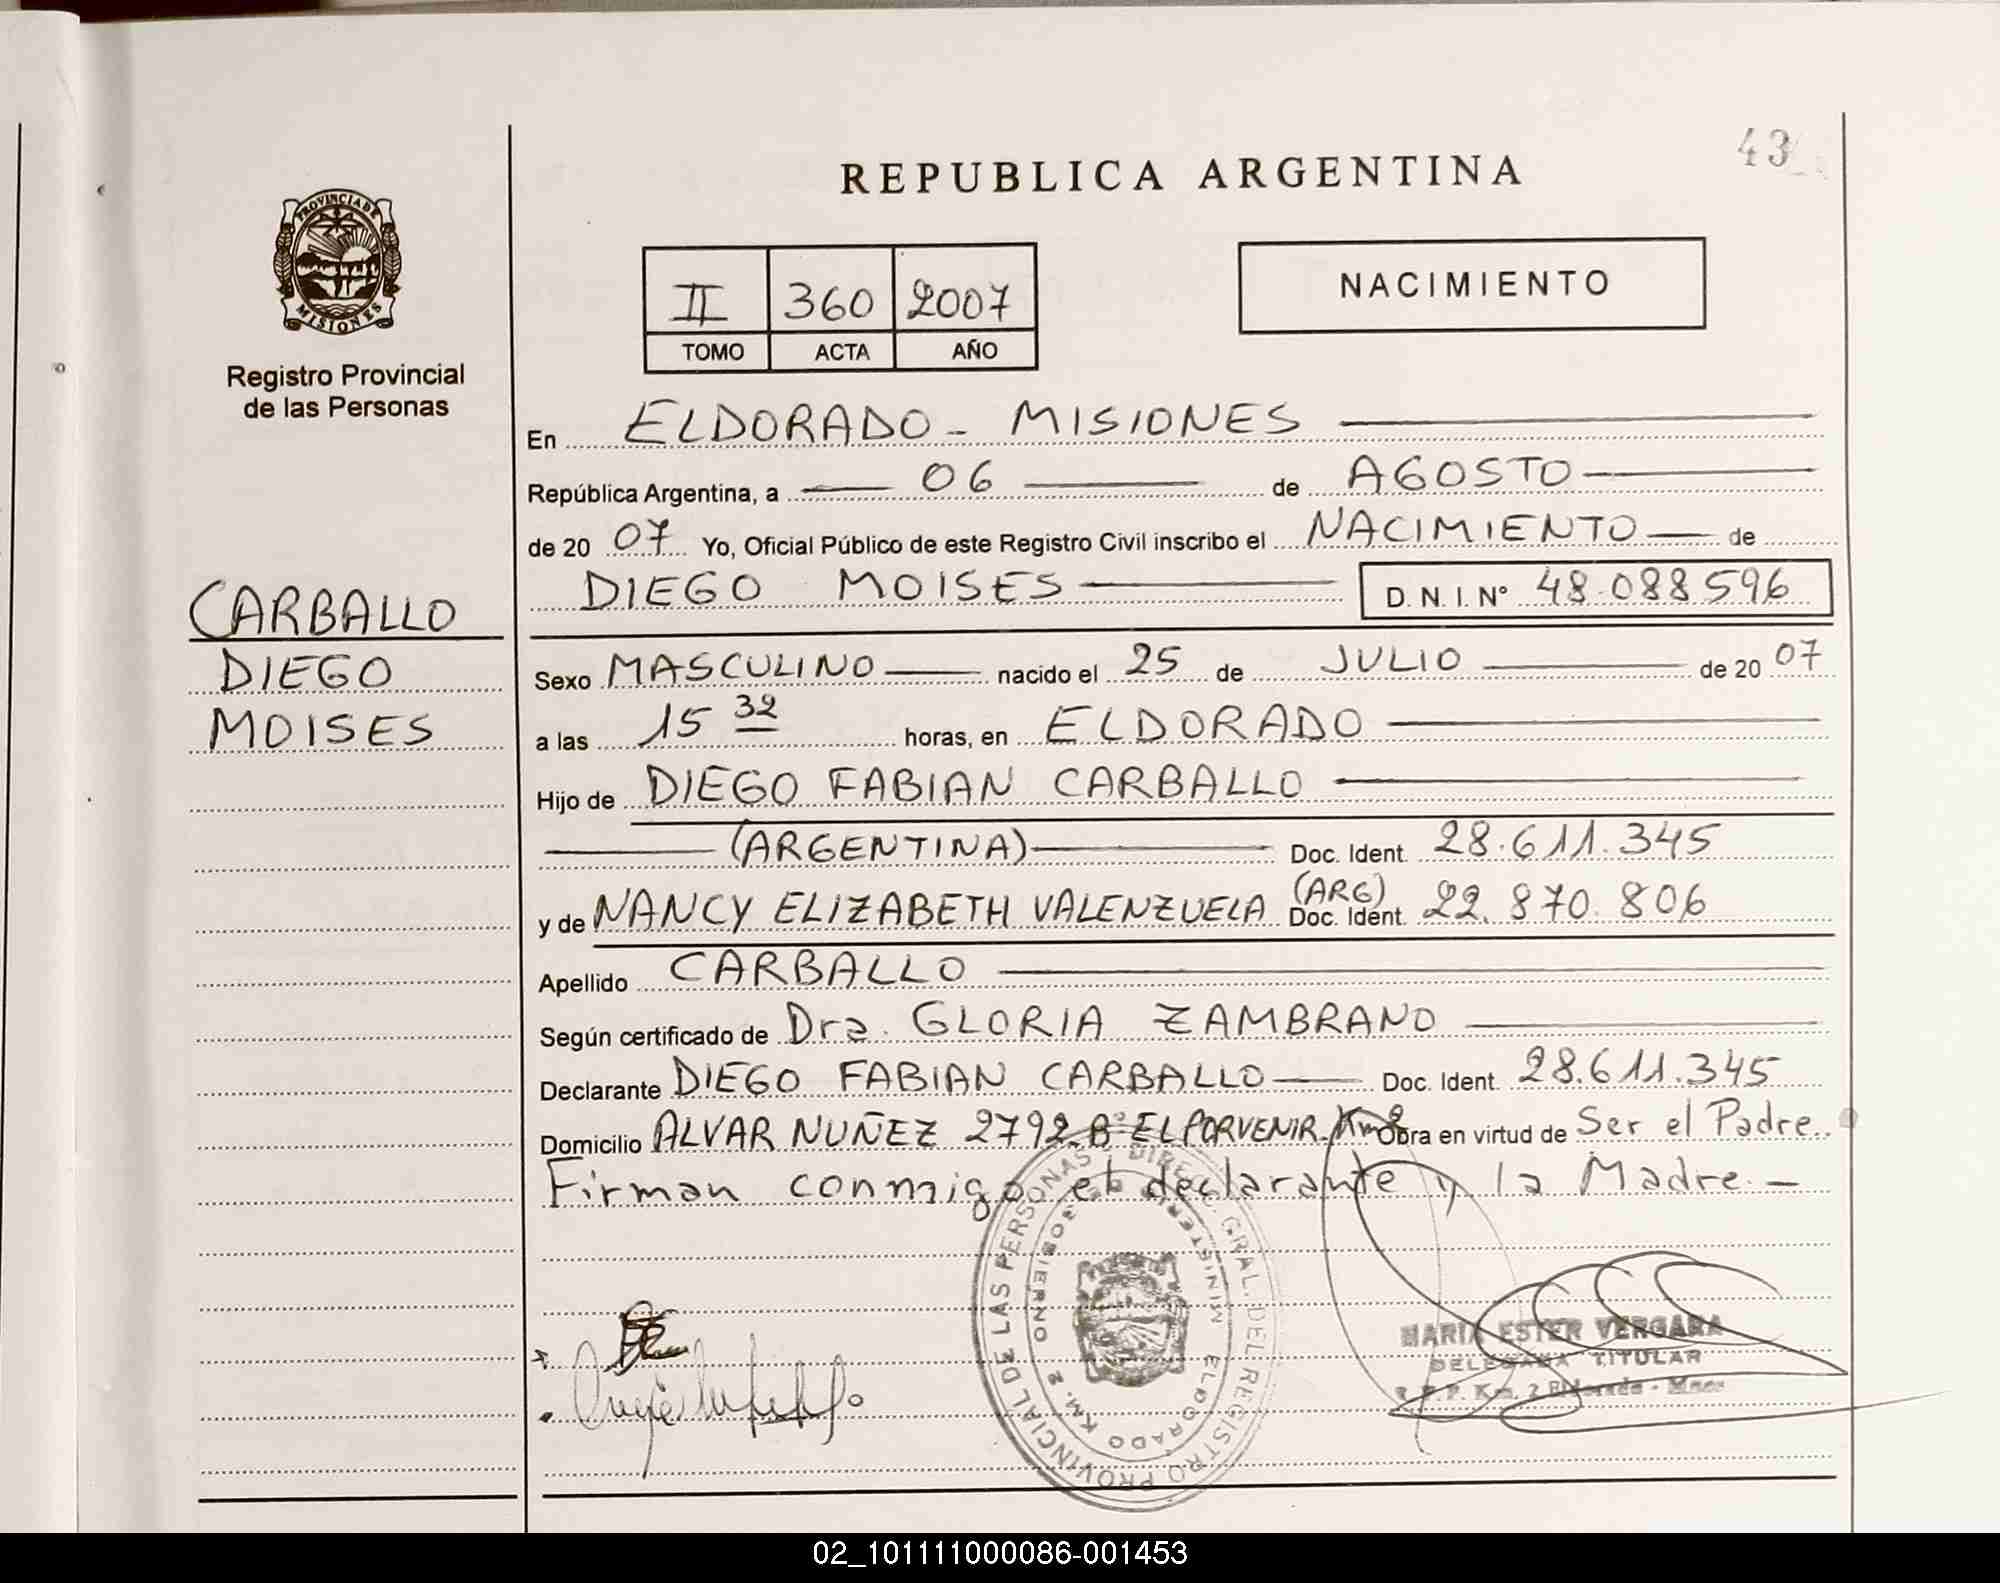 43
REPUBLICA ARGENTINA
PROVINCIA DE
MISIONES
Registro Provincial
de las Personas
II 360 2007
TOMO ACTA AÑO
NACIMIENTO
En ELDORADO - MISIONES
República Argentina, a 06 de AGOSTO
de 20 07 Yo, Oficial Público de este Registro Civil inscribo el NACIMIENTO de
DIEGO MOISES D. N. I. N° 48.088596
CARBALLO
DIEGO
MOISES
Sexo MASCULINO nacido el 25 de JULIO de 20 07
a las 15 32 horas, en ELDORADO
Hijo de DIEGO FABIAN CARBALLO
(ARGENTINA) Doc. Ident. 28.611.345
y de NANCY ELIZABETH VALENZUELA (ARG) Doc. Ident. 22.870.806
Apellido CARBALLO
Según certificado de Dra. GLORIA ZAMBRANO
Declarante DIEGO FABIAN CARBALLO Doc. Ident. 28.611.345
Domicilio ALVAR NUÑEZ 2792 B° EL PORVENIR. Km 8 Obra en virtud de Ser el Padre.
Firman conmigo el declarante y la Madre. -
DIREC. GRAL. DEL REGISTRO PROVINCIAL DE LAS PERSONAS
MINISTERIO GOBIERNO
ELDORADO KM. 2
MARIA ESTER VERGARA
DELEGADA TITULAR
R.P.P. Km. 2 Eldorado - Mnes
02_101111000086-001453